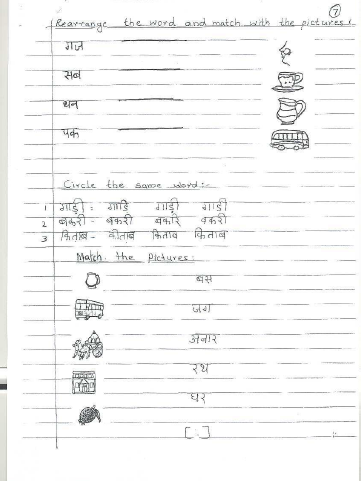 7
Rearrange the word and match with the pictures.
गज
सब
थन
पक
Circle the same word:-
1 गाड़ी : गाड़ि गाड़ी गाड़ी
2 बकरी - बकरी बकरि बकरी
3 किताब - कीताब किताब किताब
Match the pictures:
बस
जग
अनार
रथ
घर